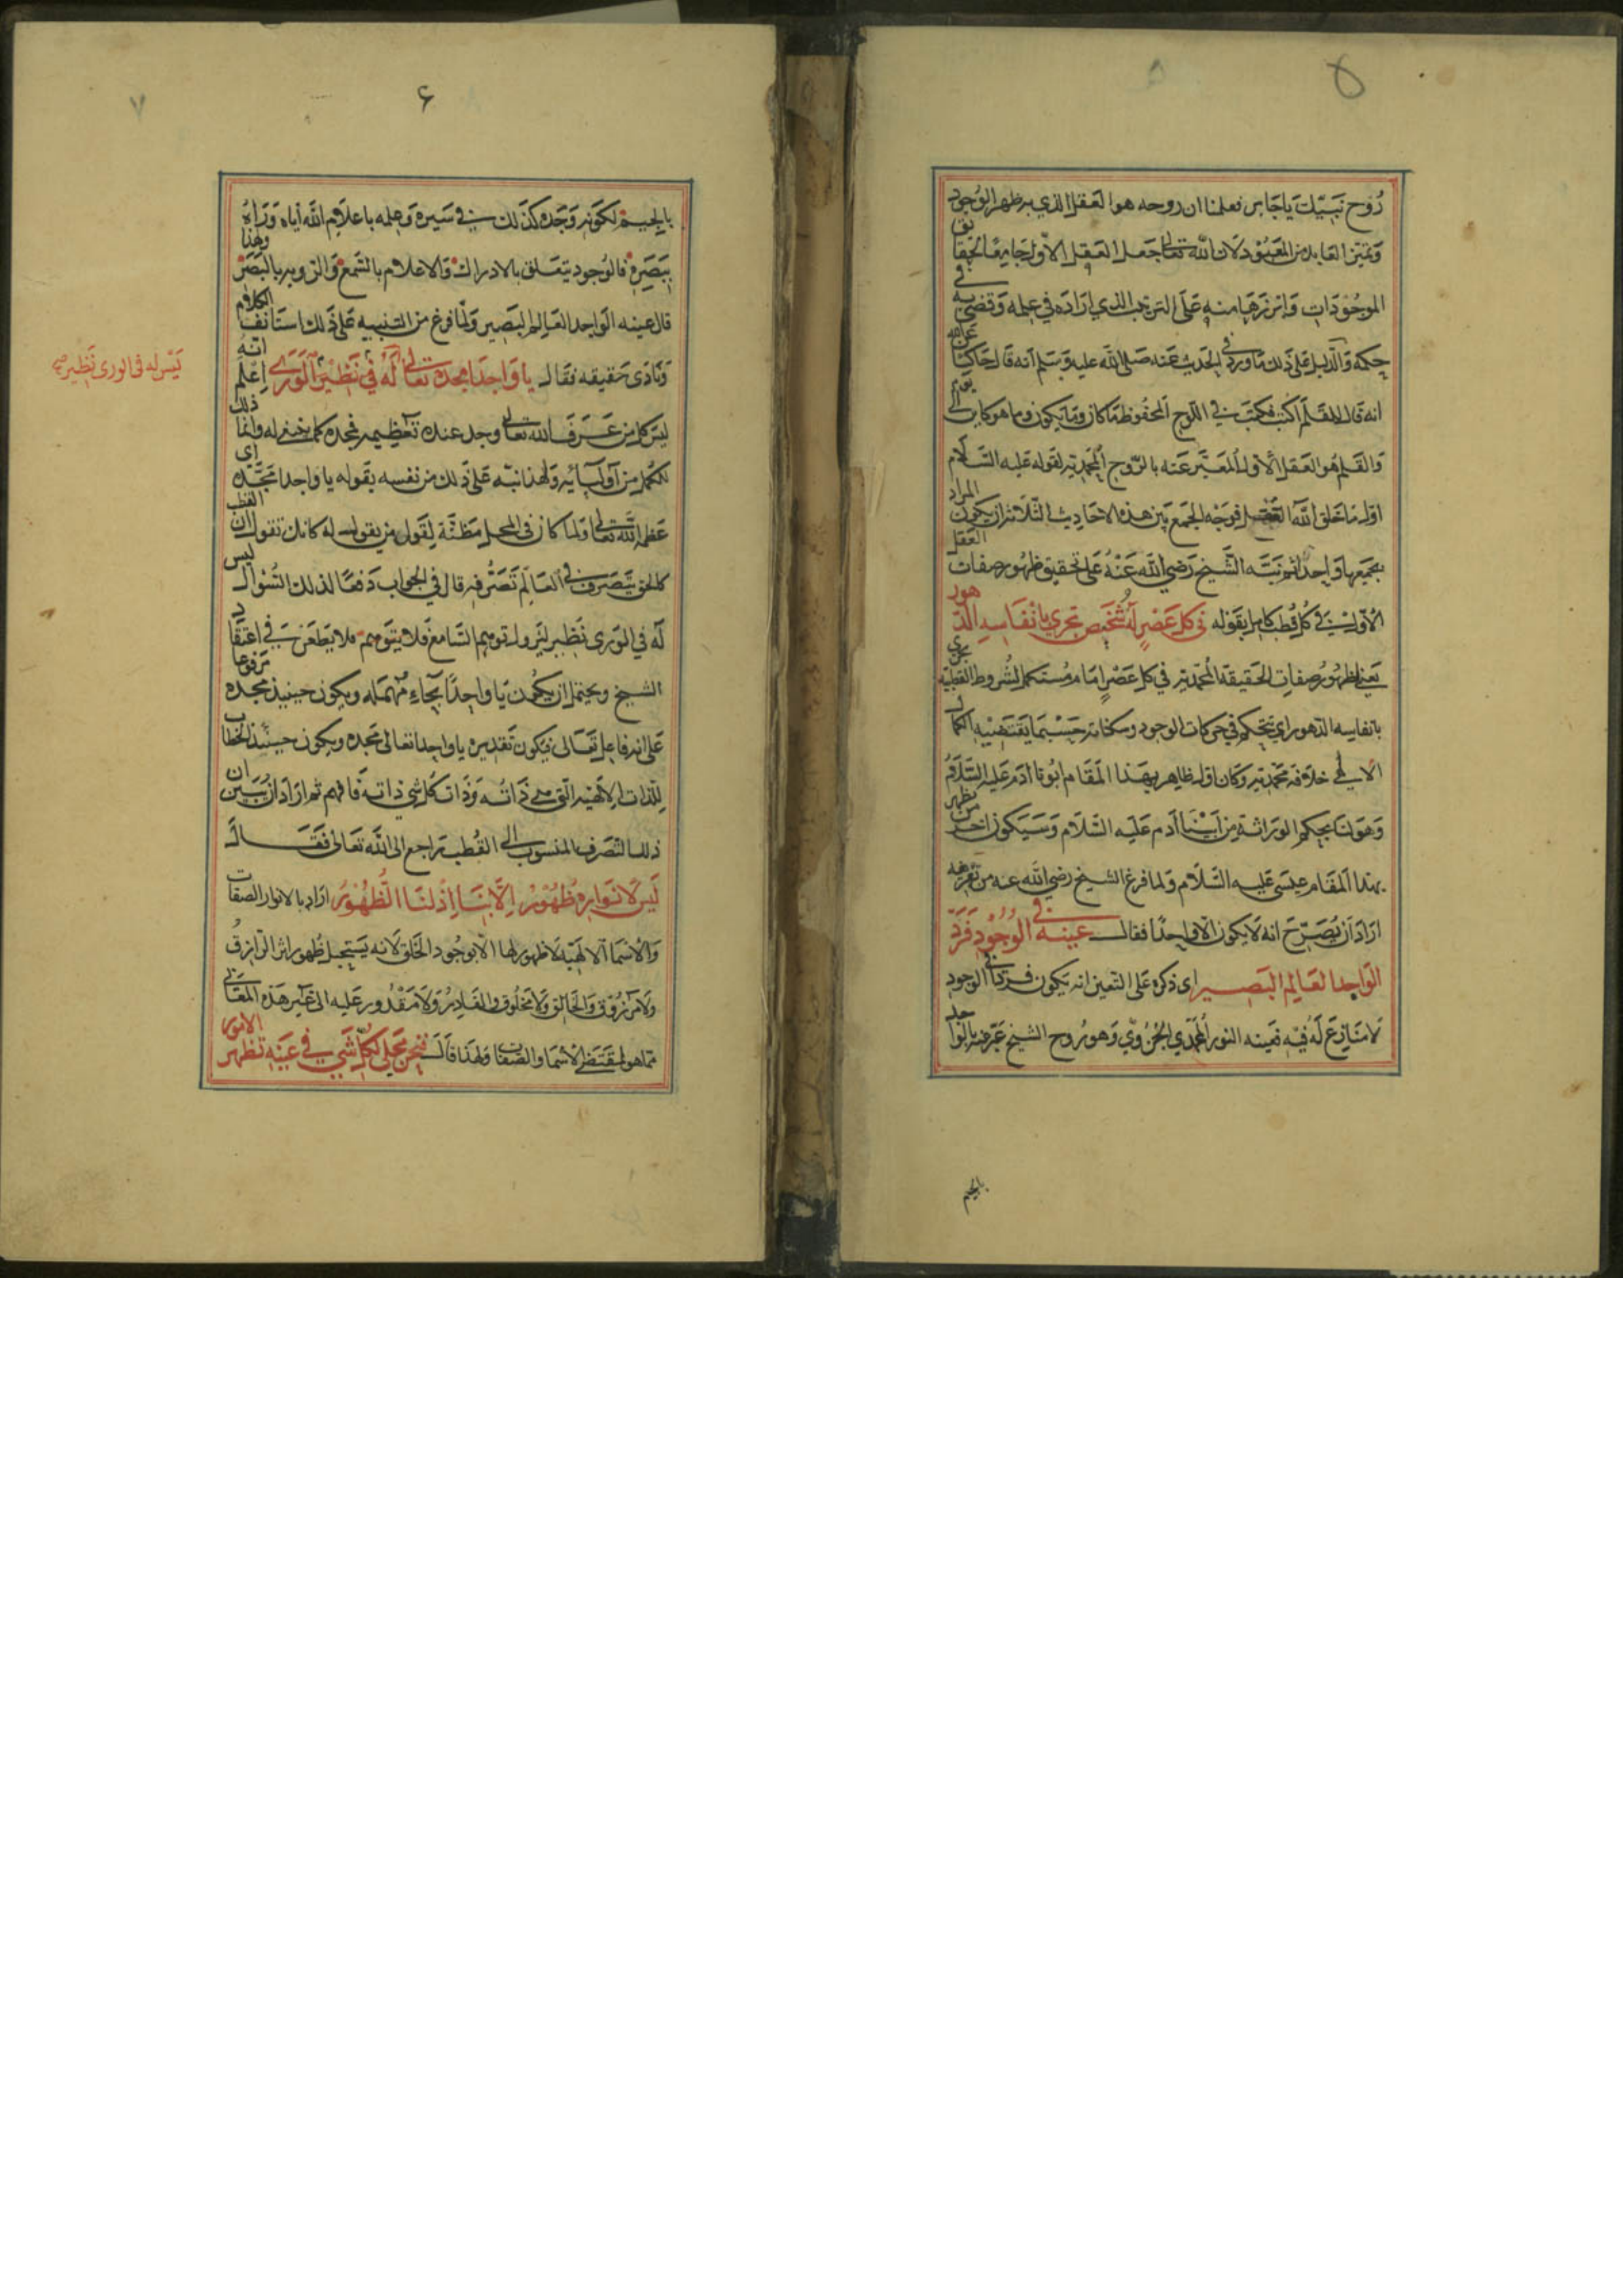 ٥
روح نبيك يا جابر فعلمنا ان روحه هو العقل الذي به ظهر الوجود
وتميز العابد من المعبود لان الله تعالى جعل العقل الاول جامعا لحقائق
الموجودات وابرزها منه على الترتيب الذي اراده في علمه وقضى به في
حكمه والدليل على ذلك ما ورد في الحديث عنه صلى الله عليه وسلم انه قال حاكيا عن الله
انه قال للقلم اكتب فكتب في اللوح المحفوظ ما كان وما يكون وما هو كاين الى يوم
والقلم هو العقل الاول المعبر عنه بالروح المحمدية لقوله عليه السلام
اول ما خلق الله العقل فوجه الجمع بين هذه الاحاديث الثلاثة ان يكون المراد
بجميعها واحدا ثم نبه الشيخ رضي الله عنه على تحقيق ظهور صفات العقل
الاول في كل قطب كامل بقوله في كل عصر له شخص تجري بانفاسه الدهور
يعني لظهور صفات الحقيقة المحمدية في كل عصر امام مستكمل لشروط القطبية تجري
بانفاسه الدهور اي يتحكم في حركات الوجود وسكناته حسبما يقتضيه الكمال
الالهي خلافة محمدية وكان اول ظاهر بهذا المقام ابونا آدم عليه السلام
وهو لنا بحكم الوراثة من ابينا آدم عليه السلام وسيكون اخر من يظهر
بهذا المقام عيسى عليه السلام ولما فرغ الشيخ رضي الله عنه من تعريفه
اراد ان يصرح انه لا يكون الا واحدا فقال عينه في الوجود فرد
الواحد العالم البصير اى ذكره على التعين انه يكون فردا في الوجود
لا منازع له فيه فعينه النور المحمدي وهو روح الشيخ عبر عنه بالواجد
بالجيم
٦
٧
بالجيم لكونه وجده كذلك في سيره وعلمه باعلام الله اياه ورآه
ببصره فالوجود يتعلق بالادراك والاعلام بالسمع والرؤية بالبصر ولهذا
قال عينه الواجد العالم البصير ولما فرغ من التنبيه على ذلك استانف الكلام
ونادى حقيقه فقال يا واجدا مجده تعالى له في نظير الورى اعلم انه
ليس له فى الورى نظير صح
ليس كل من عرف الله تعالى وجد عنده تعظيمه فمجده كما ينبغي له وانما ذلك
للكمل من اوليائه ولهذا نبه على ذلك من نفسه بقوله يا واجدا مجده اي
عظم الله تعالى ولما كان في المحل مظنة لقول من يقول له كانك تقول ان القطب
كالحق يتصرف في العالم تصرفه قال في الجواب دفعا لذلك السؤال ليس
له في الورى نظير ليزول توهم السامع فلا يتوهم فلا يطعن في اعتقاد
الشيخ ويحتمل ان يكون يا واحدا بحاء مهملة ويكون حينيذ مجده مرفوعا
على انه فاعل تعالى فيكون تقديره يا واحدا تعالى مجده ويكون حينئذ الخطاب
للذات الالهية التي هي ذاته وذات كل شي ذاته فافهم ثم اراد ان يبين ان
ذلك التصرف المنسوب الى القطبية راجع الى الله تعالى فقال
ليس لانواره ظهور الا بنا اذ لنا الظهور اراد بالانوار الصفات
والاسما الالهية لا ظهور لها الا بوجود الخلق لانه يستحيل ظهور اثر الرازق
ولا مرزوق والخالق ولا مخلوق والقادر ولا مقدور عليه الى غير هذه المعاني
مما هو لمقتضى الاسما والصفات ولهذا قال فنحن مجلى لكل شي في عينه تظهر الامور